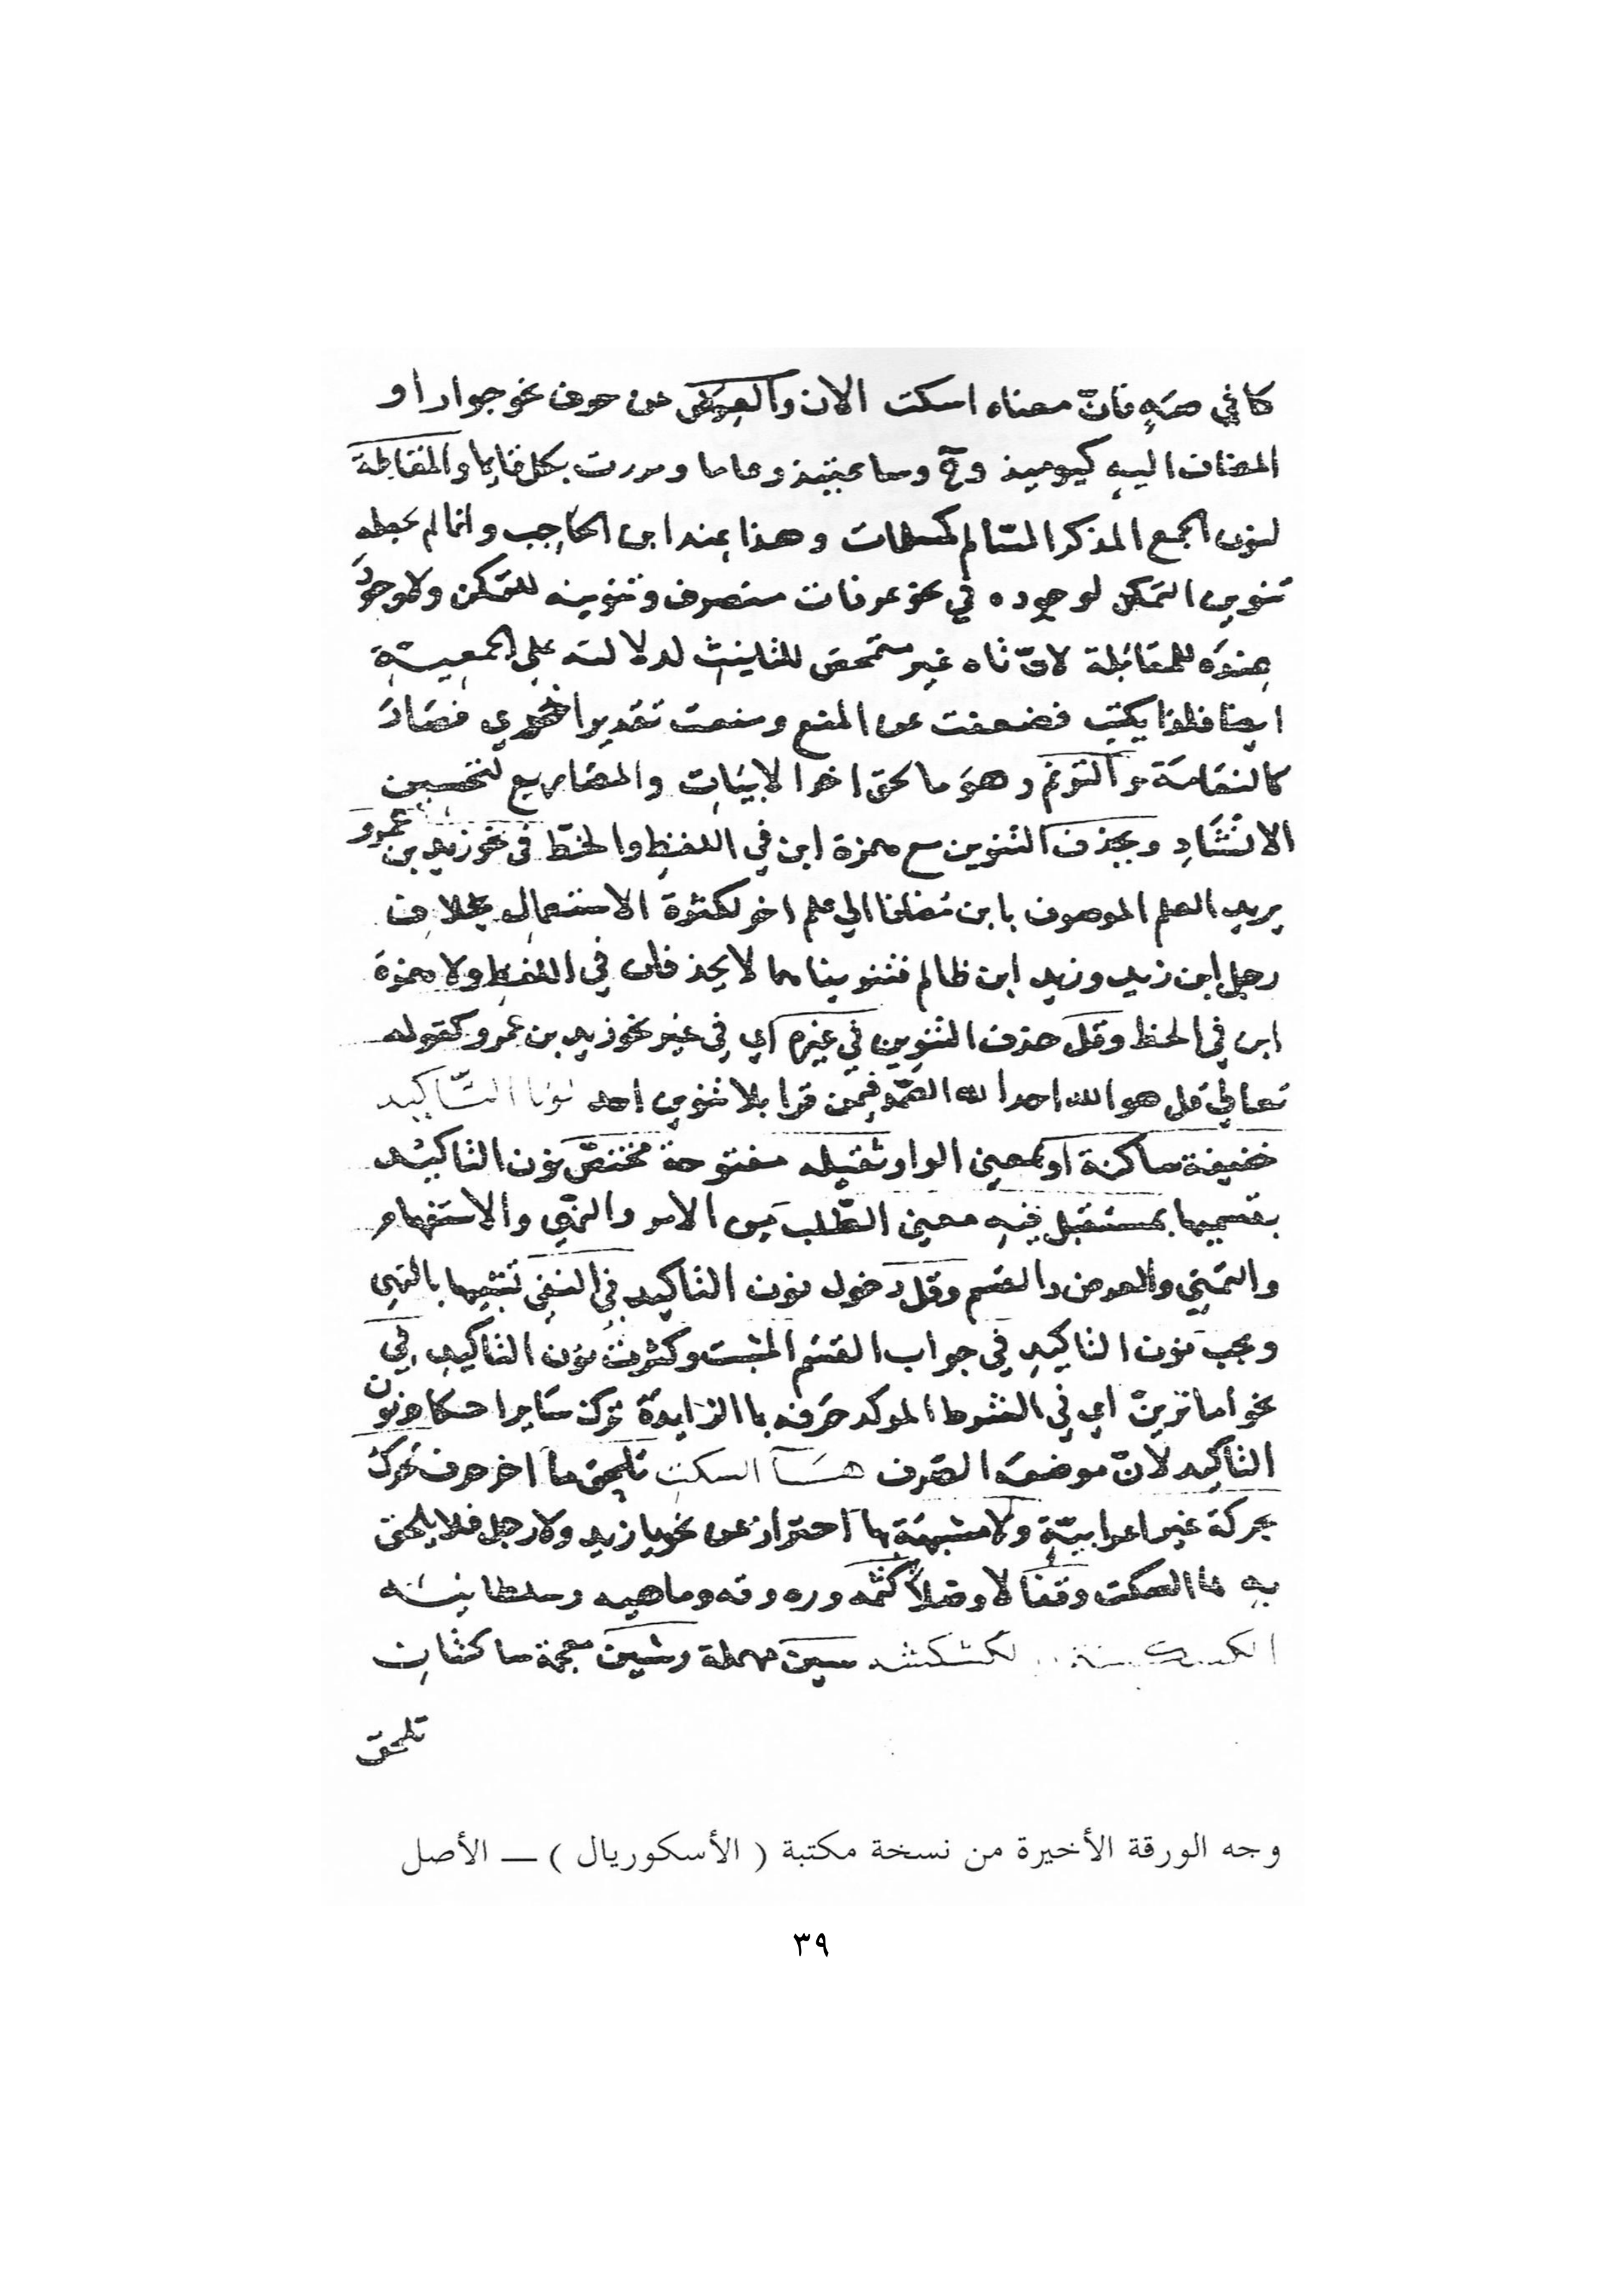 كما في صَهٍ فانّ معناه اسكت الان والعوض عن حرف نحو جوار او
المضاف اليه كيوميذ وح وساعتيذ وعاما ومررت بكل قايما والمقابلة
لنون الجمع المذكر السّالم كمسلمات وهذا عند ابن الحاجب وانما لم يجعله
تنوين التمكن لوجوده في نحو عرفات منصرف وتنوينه للتمكن ولا وجودَ
عنده للمقابلة لانّ تاه غير متمحض للتانيث لدلالته علي الجمعيّة
ايضا فلذا يكتب فضعفت عن المنع ومنعت تقدير اخري فصَارَ
كالنعَامَة والترنم وهوَ ما لحق اخر الابيَات والمصَاريع لتحسين
الانشَادِ ويحذف التنوين مع همزة ابن في اللفظِ والخطّ في نحو زيد بن عمرو
يريد العلم الموصوف بابن مضافا الي علم اخر لكثرة الاستعمال بخلاف
رجل ابن زيد وزيد ابن ظالم فتنويناهما لا يحذفان في اللفظ ولا همزة
ابن في الخط وقلّ حذف التنوين في غيره اي في غير نحو زيد بن عمرو كقوله
تعالي قل هو الله احد الله الصّمد فيمن قرا بلا تنوين احد نونا التّاكيد
خفيفة ساكنة او بمعني الواو ثقيله مفتوحة مختصّ نون التاكيد
بقسميها بمستقبل فيه معني الطّلب من الامر والنهي والاستفهام
والتمنِّي والعرض والقسم وقلّ دخول نون التاكيد في النفي تشبيها بالنهي
ويجب نون التاكيد في جواب القسَم المثبت وكثرت نون التاكيد في
نحو اما ترينّ اي في الشرط الموكد حَرفه بما الزايدة ترك سَاير احكام نون
التاكيد لانّ موضعه الصّرف هَآ السكت تلحق مآ اخر حرف تحرك
بحركة غير اعرابيّة ولا مشبهَة بها احتراز عن نحو يا زيد ولا رجل فلا يلحق
به ها السكت وقفا لا وصْلاً كثمّه وره وقه وماهيه وسلطانيَه
الكسكسة الكشكشه سين مهملة وشين معجمة ساكنتان
تلحق
وجه الورقة الأخيرة من نسخة مكتبة ( الأسكوريال ) ــ الأصل
٣٩